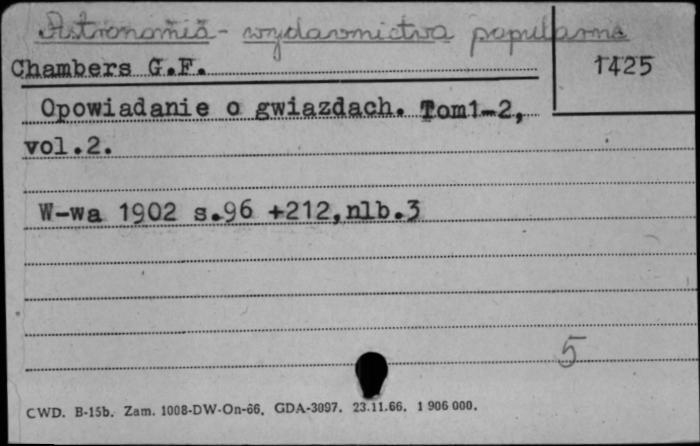 Astronomia - wydawnictwa popularne
Chambers G.F.
1425
Opowiadanie o gwiazdach. Tom1-2,
vol.2.
W-wa 1902 s.96 +212,nlb.3
5
CWD. B-15b. Zam. 1008-DW-On-66. GDA-3097. 23.11.66. 1 906 000.